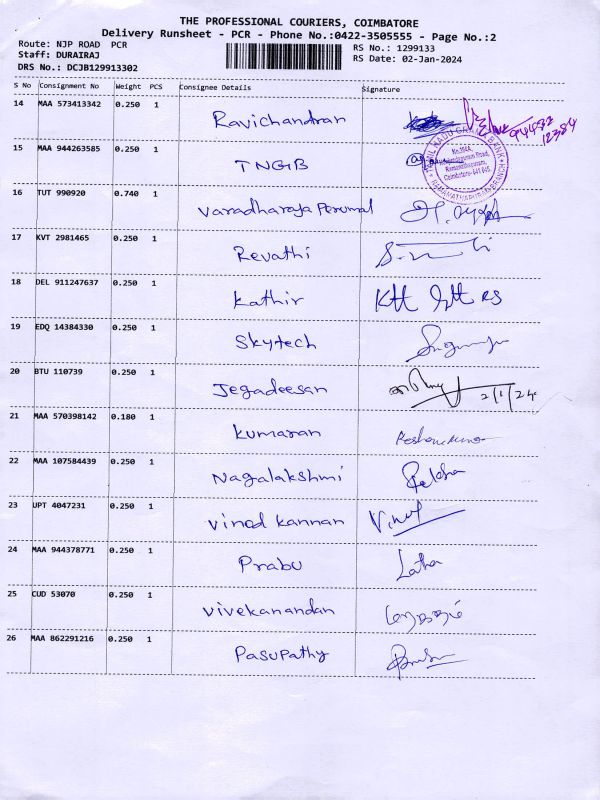 THE PROFESSIONAL COURIERS, COIMBATORE
Delivery Runsheet - PCR - Phone No.:0422-3505555 - Page No.:2
Route: NJP ROAD PCR
RS No.: 1299133
Staff: DURAIRAJ
RS Date: 02-Jan-2024
DRS No.: DCJB129913302
S No Consignment No Weight PCS Consignee Details Signature
14 MAA 573413342 0.250 1 Ravichandran
15 MAA 944263585 0.250 1 TNGB
TAMIL NADU GRAMA BANK
RAMANATHAPURAM BRANCH
16 TUT 990920 0.740 1 Varadharaja Perumal
17 KVT 2981465 0.250 1 Revathi
18 DEL 911247637 0.250 1 Kathir
19 EDQ 14384330 0.250 1 Skytech
20 BTU 110739 0.250 1 Jegadeesan 2/1/24
21 MAA 570398142 0.180 1 Kumaran
22 MAA 107584439 0.250 1 Nagalakshmi
23 UPT 4047231 0.250 1 Vinod Kannan
24 MAA 944378771 0.250 1 Prabu Latha
25 CUD 53070 0.250 1 Vivekanandan
26 MAA 862291216 0.250 1 Pasupathy